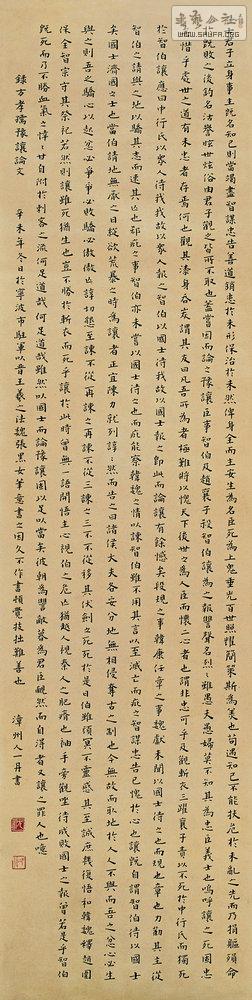 君子立身事主既名知己則當竭盡智謀忠告善道銷患於未形保治於未然俾身全而主安生為名臣死為上鬼垂光百世照耀簡策斯為美也苟遇知己不能扶危於未亂之先而乃捐軀殞命
於既敗之後釣名沽譽眩世炫俗由君子觀之皆所不取也蓋嘗因而論之豫讓臣事智伯及趙襄子殺智伯讓為之報讐聲名烈烈雖愚夫愚婦莫不知其為忠臣義士也嗚呼讓之死固忠
矣惜乎處死之道有未忠者存焉何也觀其漆身吞炭謂其友曰凡吾所為者極難將以愧天下後世之為人臣而懷二心者也謂非忠可乎及觀斬衣三躍襄子責以不死於中行氏而獨死
於智伯讓應曰中行氏以衆人待我我故以衆人報之智伯以國士待我我故以國士報之即此而論讓有餘憾矣段規之事韓康任章之事魏獻未聞以國士待之也而規也章也力勸其主從
智伯之請與之地以驕其志而速其亡也郄疵之事智伯亦未嘗以國士待之也而疵能察韓魏之情以諫智伯雖不用其言以至滅亡而疵之智謀忠告已無愧於心也讓既自謂智伯待以國士
矣國士濟國之士也當伯請地無厭之日縱欲荒暴之時為讓者正宜陳力就列諄諄然而告之曰諸侯大夫各安分地無相侵奪古之制也今無故而取地於人人不與而吾之忿心必生
與之則吾之驕心以起忿必爭爭必敗驕必傲傲必亡諄切懇至諫不從再諫之再諫不從三諫之三諫不從移其伏劍之死死於是日伯雖頑冥不靈感其至誠庶幾復悟和韓魏釋趙圍
保全智宗守其祭祀若然則讓雖死猶生也豈不勝於斬衣而死乎讓於此時曾無一語開悟主心視伯之危亡猶越人視秦人之肥瘠也袖手旁觀坐待成敗國士之報曾若是乎智伯
既死而乃不勝血氣之悻悻甘自附於刺客之流何足道哉何足道哉雖然以國士而論豫讓固不足以當矣彼朝為讐敵暮為君臣靦然而自得者又讓之罪人也噫
錄方孝孺豫讓論文 辛未年冬日於寧波市駐軍以晉王羲之法魏張黑女筆意書之因久不作書頗覺技拙難善也 漳州人一丹書